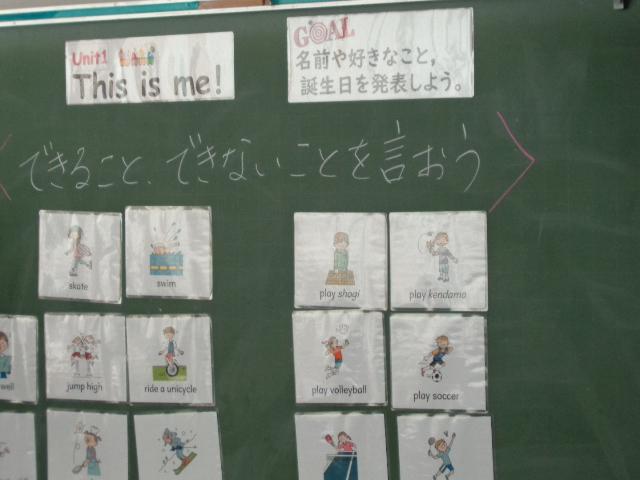 Unit1
This is me!
GOAL
名前や好きなこと,
誕生日を発表しよう。
できること、できないことを言おう
skate
swim
play shogi
play kendama
well
jump high
ride a unicycle
play volleyball
play soccer